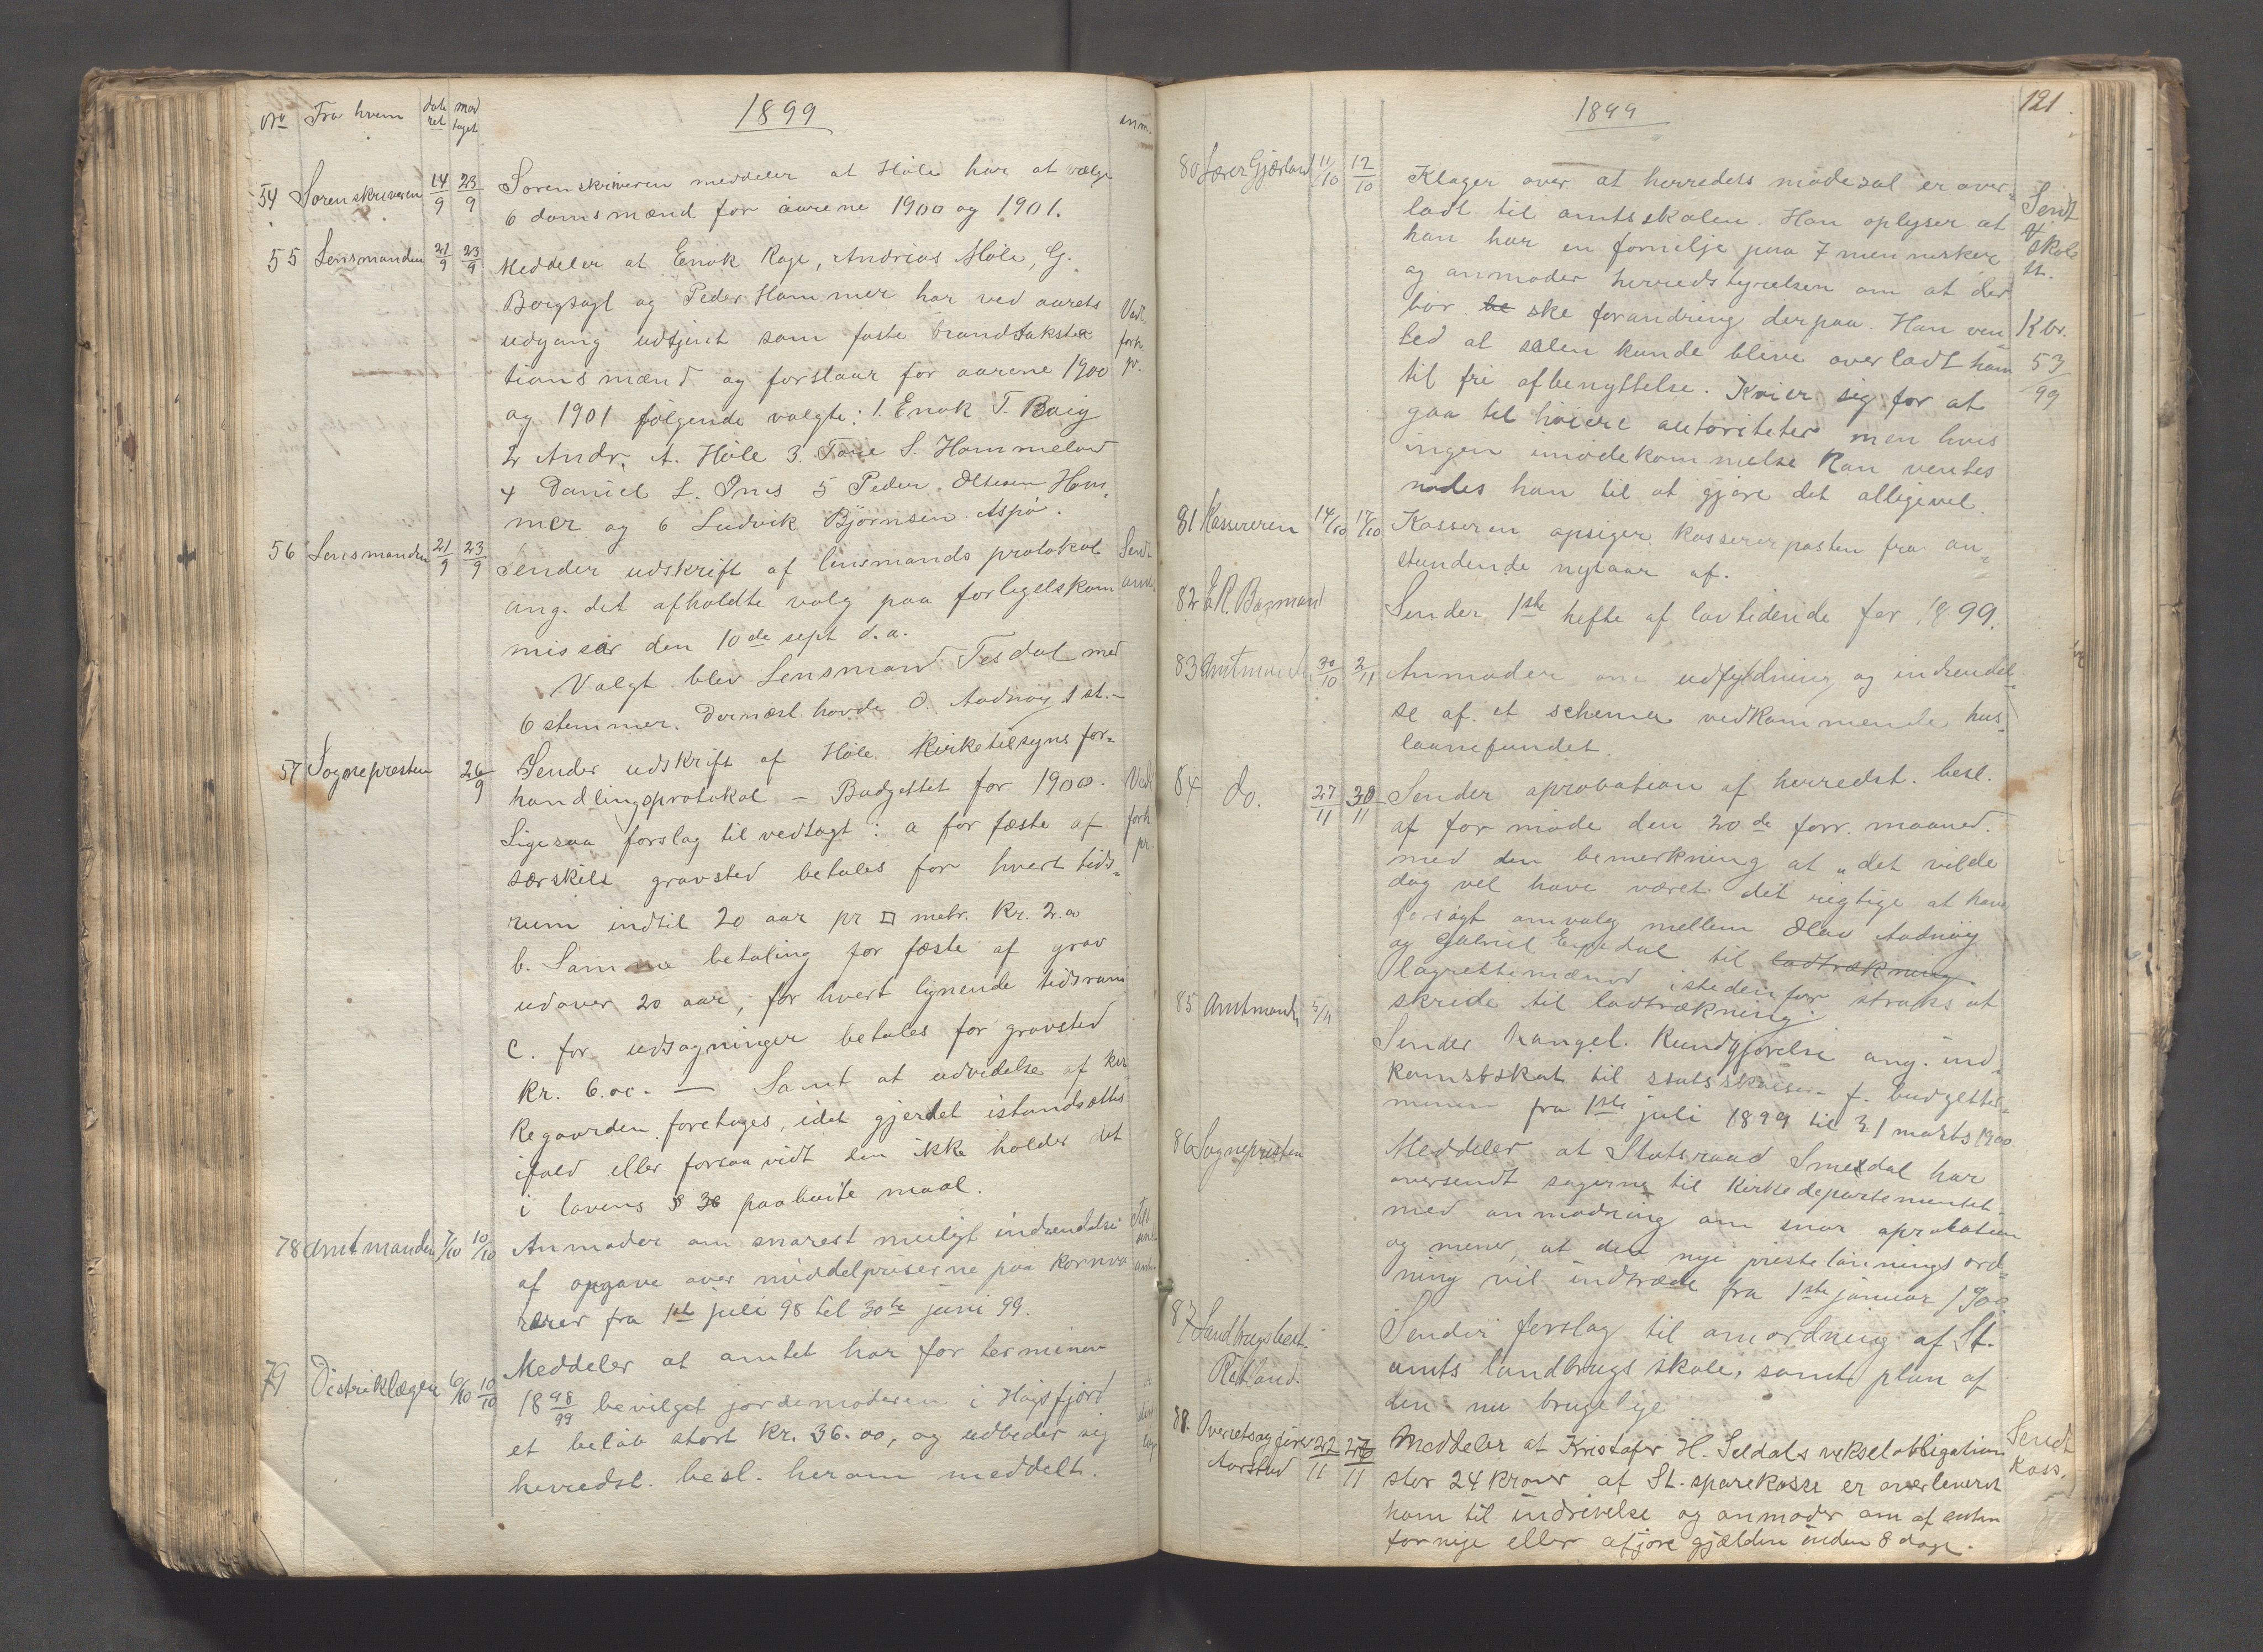 No Fra hvem dateret modtaget 1899 anm.
54 Sorenskriveren 14/9 23/9 Sorenskriveren meddeler at Höle har at vælge
6 domsmænd for aarene 1900 og 1901.
55 Lensmanden 21/9 23/9 Meddeler at Enok Rage, Andreas Höle, G.
Bergsagl og Peder Hammer har ved aarets
udgang udtjent som faste brandtaksta Vedt.
tionsmænd og forslaar for aarene 1900 forh. pr.
og 1901 følgende valgte: 1. Enok T. Boig
2 Andr. A. Höle 3. Tore S. Hommeland
4 Daniel L. Ims 5 Peder Oltesen Ham
mer og 6 Ludvik Björnsen Aspö.
56 Lensmanden 21/9 23/9 Sender udskrift af lensmands protokol Sendt
ang. det afholdte valg paa forligelskom amtm.
missær den 10de sept d.a.
Valgt blev Lensmand Tesdal med
6 stemmer. Dernæst havde O. Aadnöy 1 st.-
57 Sognepresten 26/9 Sender udskrift af Höle Kirketilsyns for-
handlingsprotokol - Budgettet for 1900. Vedt.
Ligesaa forslag til vedtægt: a for fæste af forh.
særskilt gravsted betales for hvert tids- pr.
rum indtil 20 aar pr □ metr. Kr. 2.00
b. Samme betaling for fæste af grav
udover 20 aar, for hvert lignende tidsrum
c. for udsogninger betales for gravsted
Kr. 6.00. — Samt at udvidelse af kir-
kegaarden foretages, idet gjerdet istandsættes
ifald eller forsaavidt den ikke holder det
i lovens § 38 paabudte maal.
78 Amtmanden 7/10 10/10 Anmoder om snarest muligt indsendelse
af opgave over middelpriserne paa kornva
rer fra 1ste juli 98 til 30te juni 99.
79 Distriktlægen 6/10 10/10 Meddeler at amtet har for terminen
18 98/99 bevilget jordemoderen i Høgsfjord
et beløb stort Kr. 36.00, og udbeder sig
herredst. besl. herom meddelt.
1899 121
80 Lærer Gjærland 11/10 12/10 Klager over at herredets mødesal er over- Sendt
ladt til amtsskolen. Han oplyser at
han har en familje paa 7 mennesker skole
og anmoder herredstyrelsen om at der st.
bør be ske forandring derpaa. Han ven Kbr.
ted at salen kunde blive overladt ham 53
til fri afbenyttelse. Kvier sig for at 99
gaa til høiere autoriteter men hvis
ingen imødekommelse kan ventes
nødes han til at gjøre det alligevel.
81 Kassereren 14/10 17/10 Kasseren opsiger kassererposten fra an-
stundende nytaar af.
82 E.R. Bogmand Sender 1ste hefte af lovtidende for 1899.
83 Amtmanden 30/10 2/11 Anmoder om udfyldning og indsendel
se af et schema vedkommende hus-
laanefondet.
84 do. 27/11 30/11 Sender aprobation af herredst. besl.
af for møde den 20de forr. maaned.
med den bemerkning at „det vilde
dog vel have været det rigtige at have
forsøgt omvalg mellem Olav Aadnöy
og Gabriel Espedal til lodtrækning
lagrettemænd istedenfor straks at
85 Amtmanden 5/11 skride til lodtrækning.
Sender kongel. kundgjørelse ang. ind-
komstskat til statskassen f. budgetter-
minen fra 1ste juli 1899 til 31 marts 1900.
86 Sognepresten Meddeler at Statsraad Smedal har
oversendt sagerne til Kirkedepartementet
med anmodning om snar aprobation
og mener, at den nye prestelønnings ord-
ning vil indtræde fra 1ste januar 1900.
87 Landbrugsbest. Sender forslag til omordning af St.
Retland. amts landbrugsskole, samt plan af
den nu brugelige
88. Overretsagfører 22/11 27/11 Meddeler at Kristofer H. Seldals vekselobligation Sendt
Aarstad stor 24 kroner af St. sparekasse er overleveret Kass.
ham til indrivelse og anmoder om at enten
fornye eller afgjøre gjælden inden 8 dage.